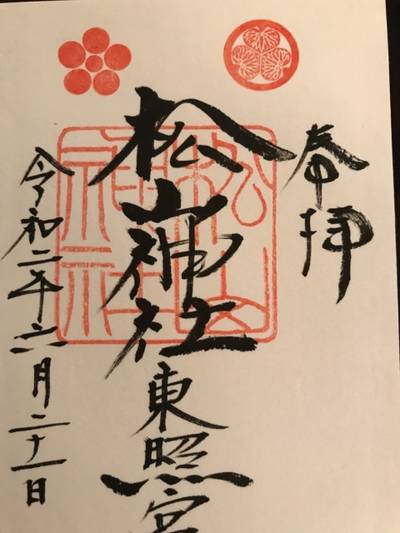 奉拝
松山神社東照宮
令和二年六月二十一日
松山神社